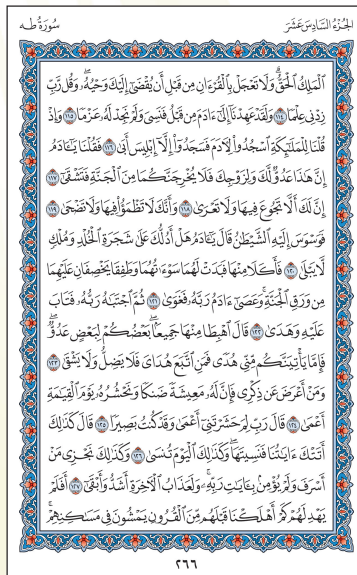 الجُزْءُ السَّادِسَ عَشَرَ
سُورَةُ طه
ٱلْمَلِكُ ٱلْحَقُّ وَلَا تَعْجَلْ بِٱلْقُرْءَانِ مِن قَبْلِ أَن يُقْضَىٰٓ إِلَيْكَ وَحْيُهُۥ وَقُل رَّبِّ
زِدْنِى عِلْمًا ١١٤ وَلَقَدْ عَهِدْنَآ إِلَىٰٓ ءَادَمَ مِن قَبْلُ فَنَسِىَ وَلَمْ نَجِدْ لَهُۥ عَزْمًا ١١٥ وَإِذْ
قُلْنَا لِلْمَلَٰٓئِكَةِ ٱسْجُدُوا۟ لِءَادَمَ فَسَجَدُوٓا۟ إِلَّآ إِبْلِيسَ أَبَىٰ ١١٦ فَقُلْنَا يَٰٓـَٔادَمُ
إِنَّ هَٰذَا عَدُوٌّ لَّكَ وَلِزَوْجِكَ فَلَا يُخْرِجَنَّكُمَا مِنَ ٱلْجَنَّةِ فَتَشْقَىٰٓ ١١٧
إِنَّ لَكَ أَلَّا تَجُوعَ فِيهَا وَلَا تَعْرَىٰ ١١٨ وَأَنَّكَ لَا تَظْمَؤُا۟ فِيهَا وَلَا تَضْحَىٰ ١١٩
فَوَسْوَسَ إِلَيْهِ ٱلشَّيْطَٰنُ قَالَ يَٰٓـَٔادَمُ هَلْ أَدُلُّكَ عَلَىٰ شَجَرَةِ ٱلْخُلْدِ وَمُلْكٍ
لَّا يَبْلَىٰ ١٢٠ فَأَكَلَا مِنْهَا فَبَدَتْ لَهُمَا سَوْءَٰتُهُمَا وَطَفِقَا يَخْصِفَانِ عَلَيْهِمَا
مِن وَرَقِ ٱلْجَنَّةِ وَعَصَىٰٓ ءَادَمُ رَبَّهُۥ فَغَوَىٰ ١٢١ ثُمَّ ٱجْتَبَٰهُ رَبُّهُۥ فَتَابَ
عَلَيْهِ وَهَدَىٰ ١٢٢ قَالَ ٱهْبِطَا مِنْهَا جَمِيعًۢا بَعْضُكُمْ لِبَعْضٍ عَدُوٌّ
فَإِمَّا يَأْتِيَنَّكُم مِّنِّى هُدًى فَمَنِ ٱتَّبَعَ هُدَاىَ فَلَا يَضِلُّ وَلَا يَشْقَىٰ ١٢٣
وَمَنْ أَعْرَضَ عَن ذِكْرِى فَإِنَّ لَهُۥ مَعِيشَةً ضَنكًا وَنَحْشُرُهُۥ يَوْمَ ٱلْقِيَٰمَةِ
أَعْمَىٰ ١٢٤ قَالَ رَبِّ لِمَ حَشَرْتَنِىٓ أَعْمَىٰ وَقَدْ كُنتُ بَصِيرًا ١٢٥ قَالَ كَذَٰلِكَ
أَتَتْكَ ءَايَٰتُنَا فَنَسِيتَهَا وَكَذَٰلِكَ ٱلْيَوْمَ تُنسَىٰ ١٢٦ وَكَذَٰلِكَ نَجْزِى مَنْ
أَسْرَفَ وَلَمْ يُؤْمِنۢ بِـَٔايَٰتِ رَبِّهِۦ وَلَعَذَابُ ٱلْءَاخِرَةِ أَشَدُّ وَأَبْقَىٰٓ ١٢٧ أَفَلَمْ
يَهْدِ لَهُمْ كَمْ أَهْلَكْنَا قَبْلَهُم مِّنَ ٱلْقُرُونِ يَمْشُونَ فِى مَسَٰكِنِهِمْ
٢٦٦